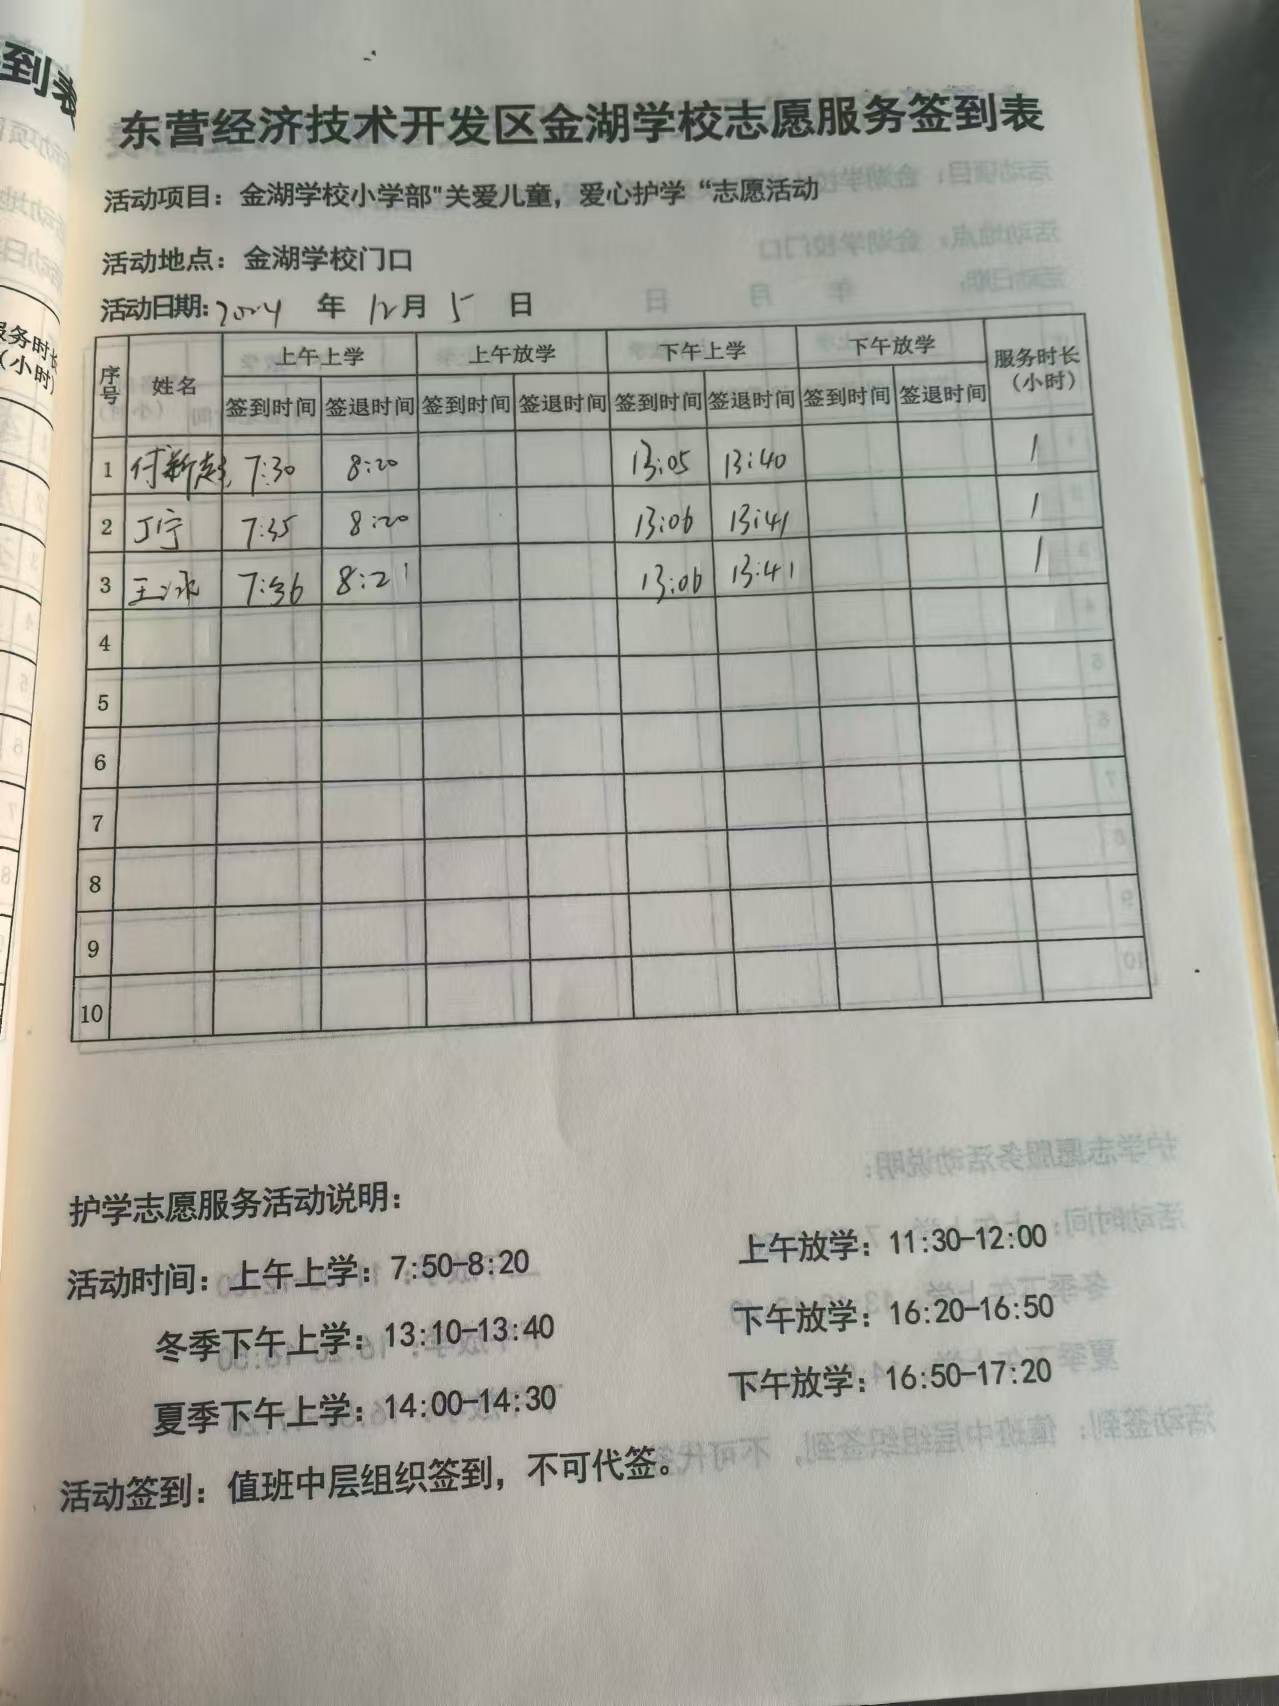 到表
服务时长
（小时）
东营经济技术开发区金湖学校志愿服务签到表
活动项目：金湖学校小学部"关爱儿童，爱心护学“志愿活动
活动地点：金湖学校门口
活动日期：2024 年 12月 5 日
序号 姓名 上午上学 上午放学 下午上学 下午放学 服务时长（小时）
签到时间 签退时间 签到时间 签退时间 签到时间 签退时间 签到时间 签退时间
1 付新 7:30 8:20 13:05 13:40 1
2 丁宁 7:35 8:20 13:06 13:41 1
3 王冰 7:36 8:21 13:06 13:41 1
4
5
6
7
8
9
10
护学志愿服务活动说明：
活动时间：上午上学：7:50-8:20 上午放学：11:30-12:00
冬季下午上学：13:10-13:40 下午放学：16:20-16:50
夏季下午上学：14:00-14:30 下午放学：16:50-17:20
活动签到：值班中层组织签到，不可代签。